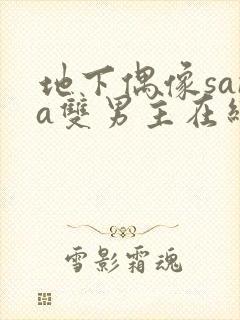 地下偶像sa
a雙男主在
雪影霜魂